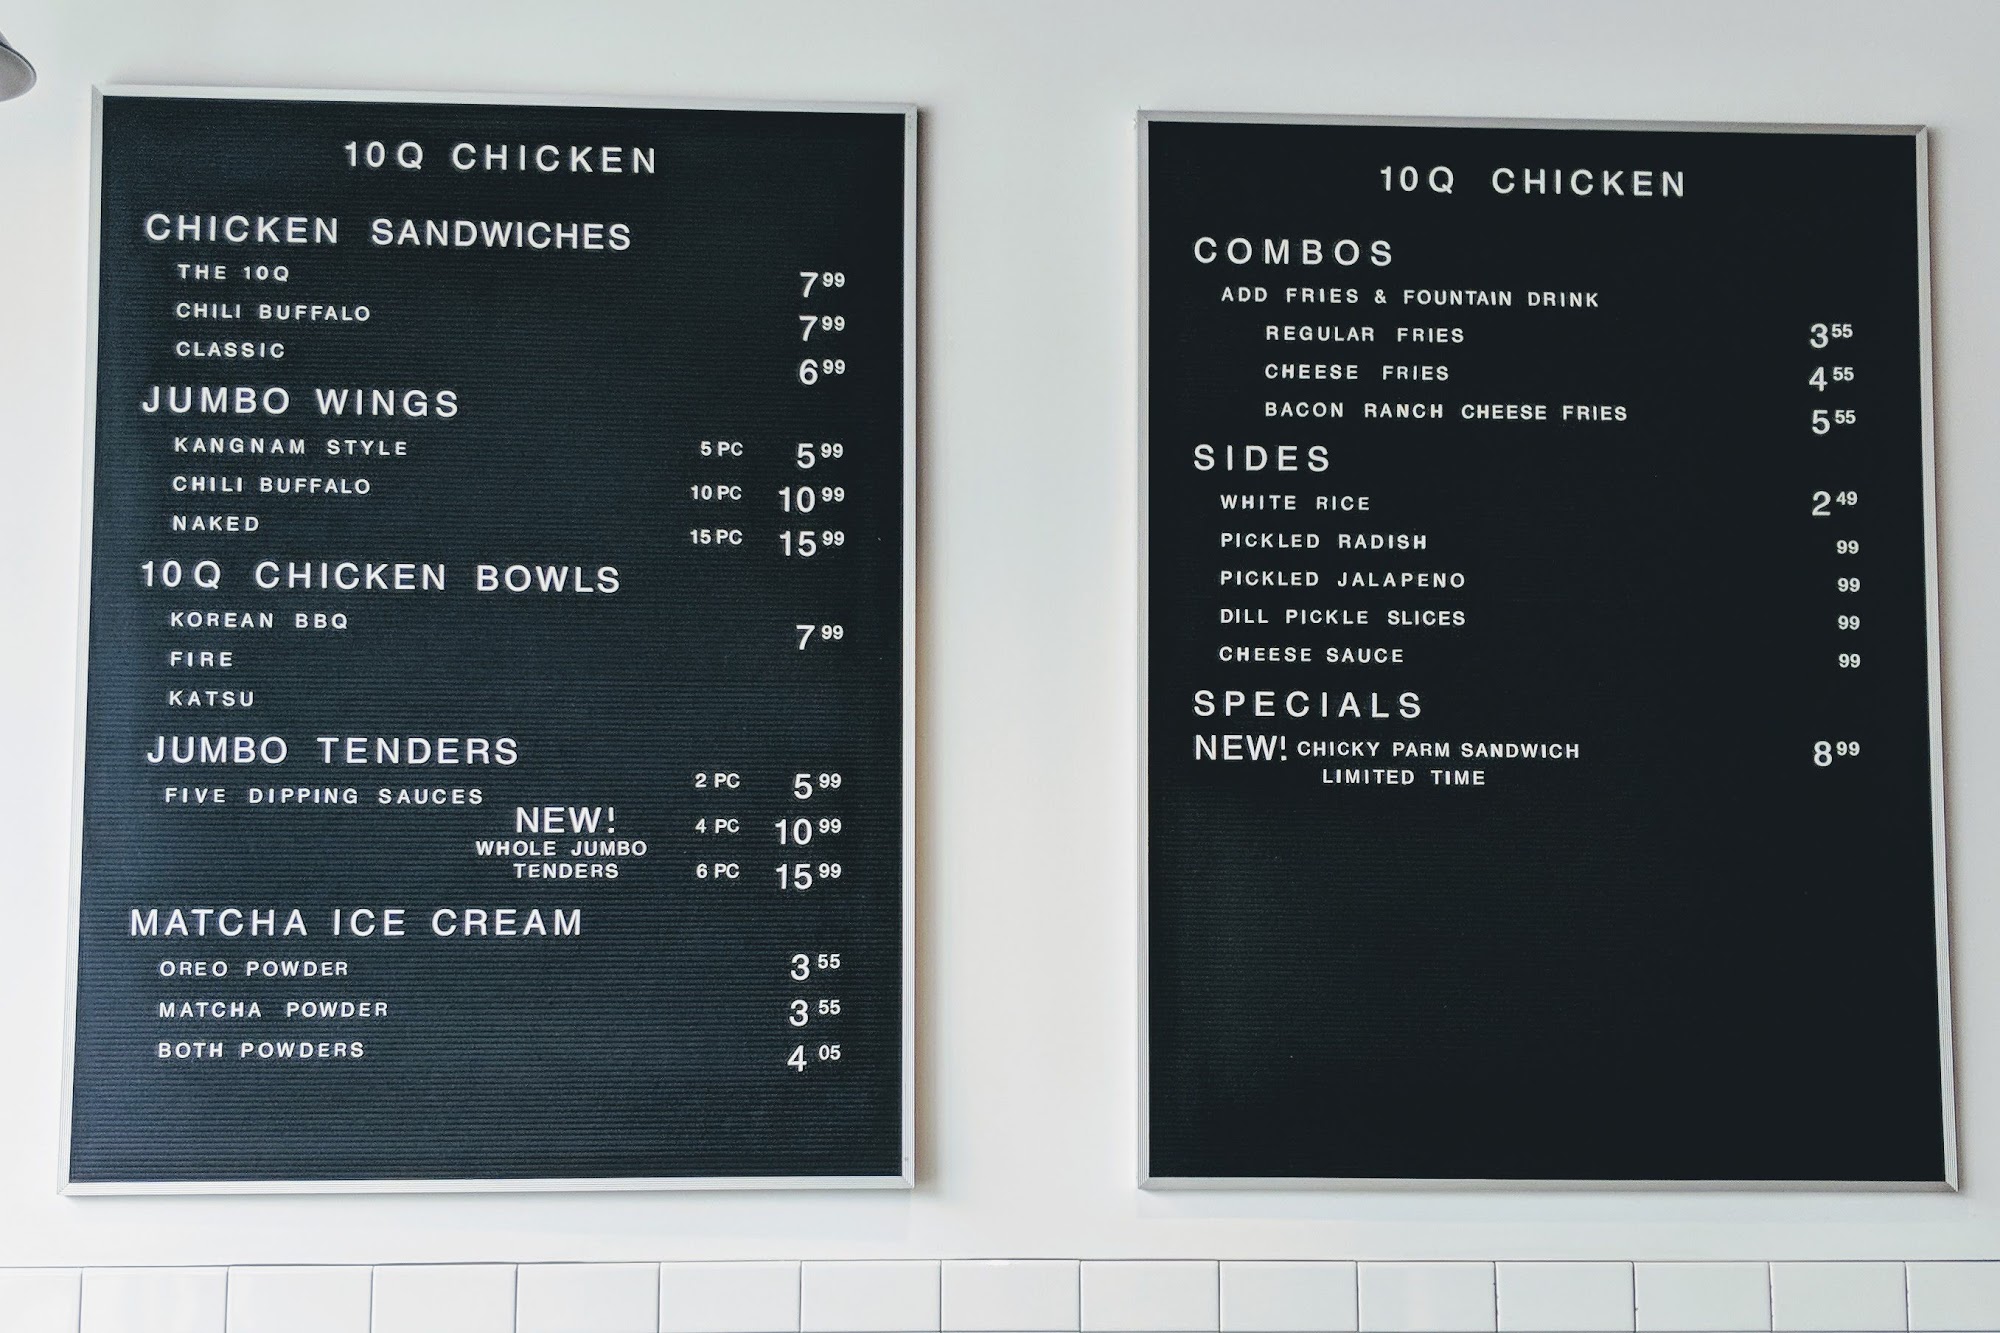 10Q CHICKEN
CHICKEN SANDWICHES
THE 10Q 7 99
CHILI BUFFALO 7 99
CLASSIC 6 99
JUMBO WINGS
KANGNAM STYLE 5 PC 5 99
CHILI BUFFALO 10 PC 10 99
NAKED 15 PC 15 99
10Q CHICKEN BOWLS
KOREAN BBQ 7 99
FIRE
KATSU
JUMBO TENDERS
FIVE DIPPING SAUCES 2 PC 5 99
NEW! 4 PC 10 99
WHOLE JUMBO
TENDERS 6 PC 15 99
MATCHA ICE CREAM
OREO POWDER 3 55
MATCHA POWDER 3 55
BOTH POWDERS 4 05
10Q CHICKEN
COMBOS
ADD FRIES & FOUNTAIN DRINK
REGULAR FRIES 3 55
CHEESE FRIES 4 55
BACON RANCH CHEESE FRIES 5 55
SIDES
WHITE RICE 2 49
PICKLED RADISH 99
PICKLED JALAPENO 99
DILL PICKLE SLICES 99
CHEESE SAUCE 99
SPECIALS
NEW! CHICKY PARM SANDWICH 8 99
LIMITED TIME